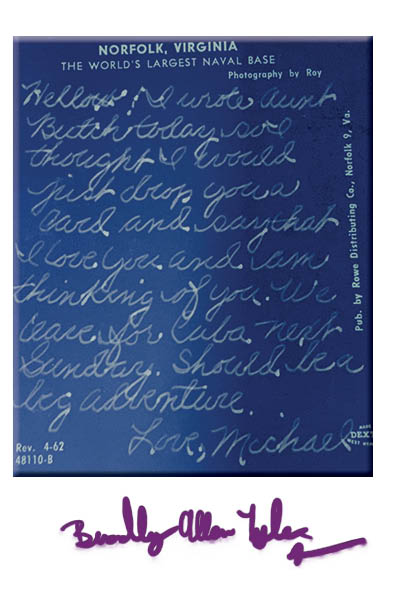 NORFOLK, VIRGINIA
THE WORLD'S LARGEST NAVAL BASE
Photography by Roy
I wrote Aunt
Butch today so I
thought I would
just drop you a
card and say that
I love you and I am
thinking of you. We
leave for Cuba next
Sunday. Should be a
big adventure.
Love, Michael
Rev. 4-62
48110-B
Pub. by Rowe Distributing Co., Norfolk 9, Va.
MADE
DEXT
WEST
Allen